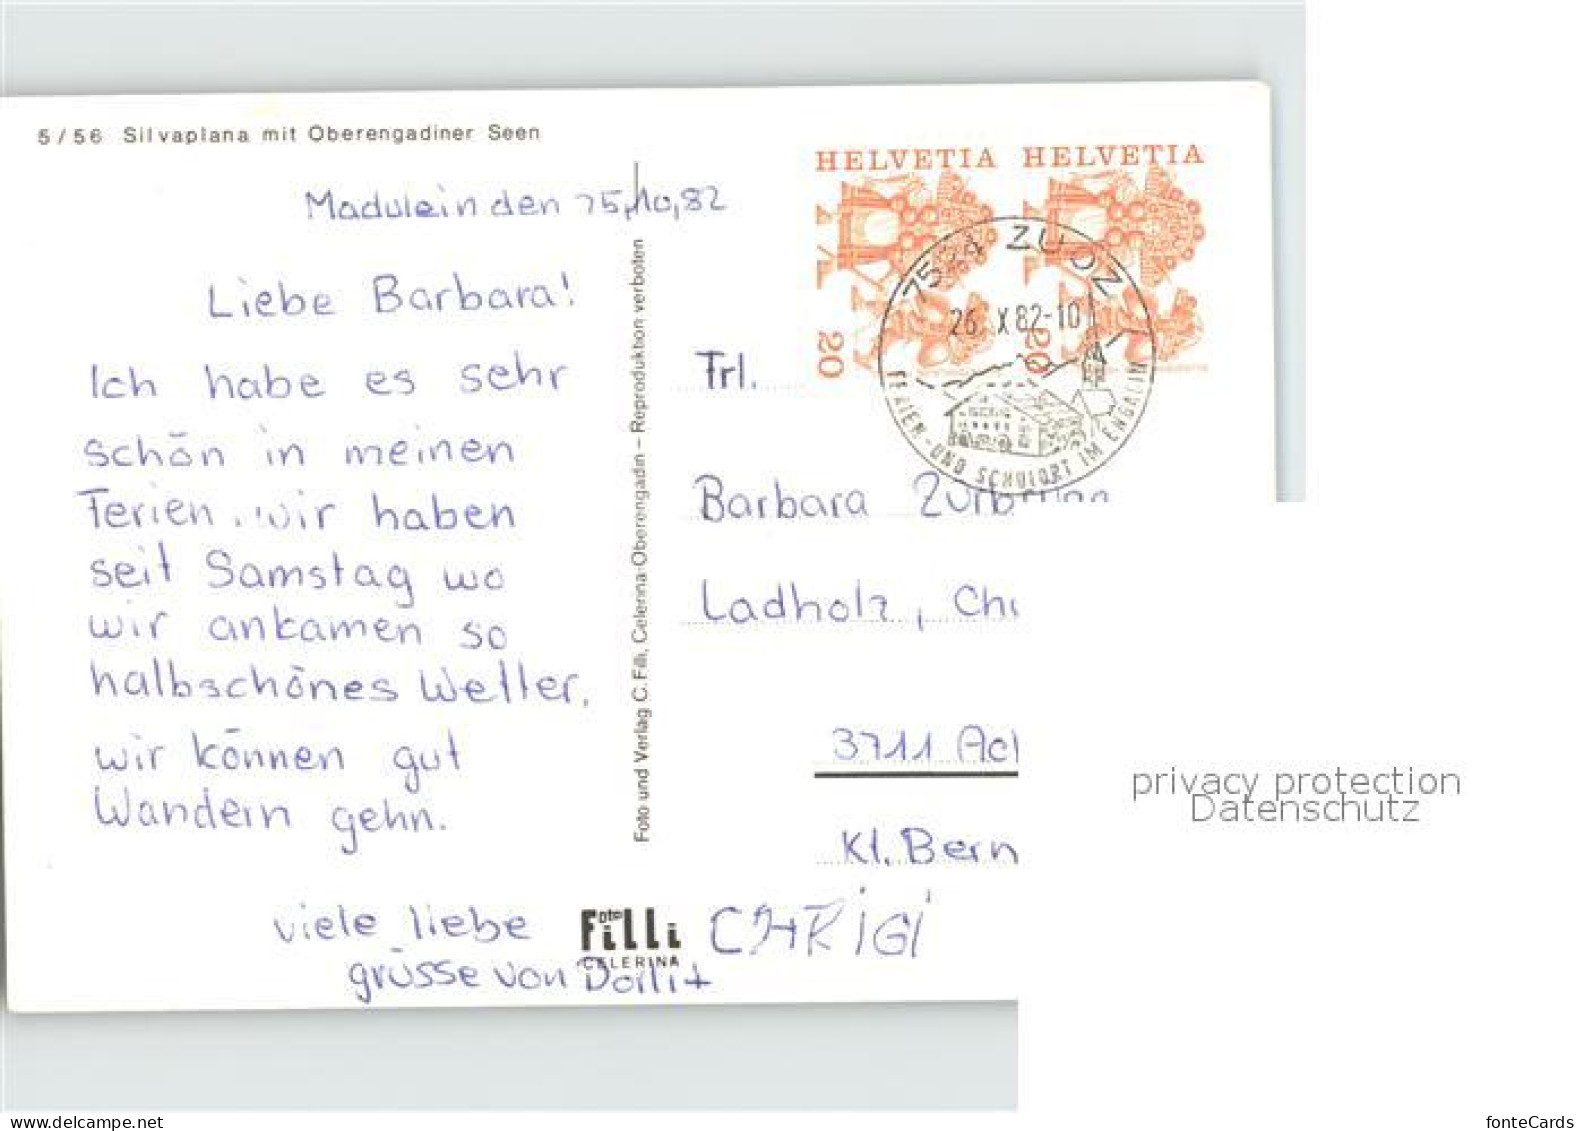 5/56 Silvaplana mit Oberengadiner Seen
Madulein den 25,10,82
Liebe Barbara!
Ich habe es sehr
schön in meinen
Ferien. wir haben
seit Samstag wo
wir ankamen so
halbschönes Wetter.
wir können gut
Wandern gehn.
viele liebe
grüsse von Dorlit
CHRIGI
Foto und Verlag C. Filli, Celerina-Oberengadin – Reproduktion verboten
Foto Filli
CELERINA
HELVETIA HELVETIA
20 20
7524 ZUOZ
26. X 82-10
FERIEN- UND SCHULORT IM ENGADIN
Frl.
Barbara
Ladholz,
3711
Kt. Bern
privacy protection
Datenschutz
fonteCards